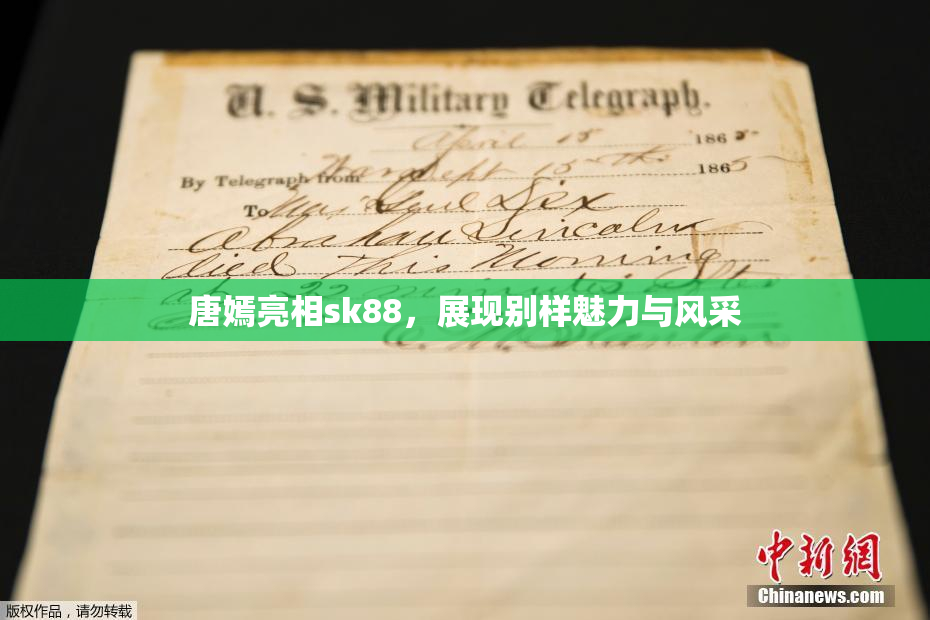 U. S. Military Telegraph.
April 15 1865
By Telegraph from War Dept 15th 1865
To Maj Genl Dix
Abraham Lincoln
died This Morning
at 22 minutes after
唐嫣亮相sk88，展现别样魅力与风采
E. M. Stanton
中新网
Chinanews.com
版权作品，请勿转载